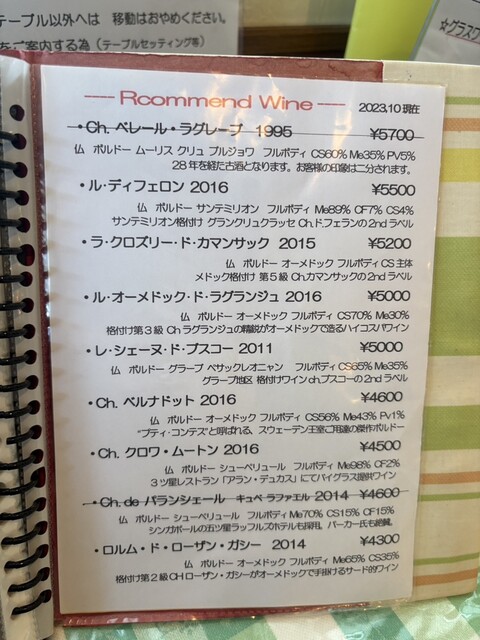 テーブル以外へは 移動はおやめください。
をご案内する為(テーブルセッティング等)
☆グラスワ
Rcommend Wine
2023,10 現在
・Ch. ベレール・ラグレーブ 1995 ¥5700
仏 ボルドー ムーリス クリュ ブルジョワ フルボディ CS60% Me35% PV5%
28年を経た古酒となります。お客様の印象は二分されます。
・ル・ディフェロン 2016 ¥5500
仏 ボルドー サンテミリオン フルボディ Me89% CF7% CS4%
サンテミリオン格付け グランクリュクラッセ Ch.ド.フェランの2nd ラベル
・ラ・クロズリー・ド・カマンサック 2015 ¥5200
仏 ボルドー オーメドック フルボディ CS 主体
メドック格付け 第5級 Ch.カマンサックの2nd ラベル
・ル・オーメドック・ド・ラグランジュ 2016 ¥5000
仏 ボルドー オーメドック フルボディ CS70% Me30%
格付け第3級 Ch ラグランジュの精鋭がオーメドックで造るハイコスパワイン
・レ・シェーヌ・ド・ブスコー 2011 ¥5000
仏 ボルドー グラーブ ペサックレオニャン フルボディ CS65% Me35%
グラーブ地区 格付けワイン ch.ブスコーの2nd ラベル
・Ch. ベルナドット 2016 ¥4600
仏 ボルドー オーメドック フルボディ CS56% Me43% Pv1%
“プティ・コンテス”と呼ばれる、スウェーデン王室ご用達の傑作ボルドー
・Ch. クロワ・ムートン 2016 ¥4500
仏 ボルドー シューペリュール フルボディ Me98% CF2%
3ツ星レストラン「アラン・デュカス」にてバイグラス提供ワイン
・Ch. de パランシェール キュベ ラファエル 2014 ¥4600
仏 ボルドー シューペリュール フルボディ Me70% CS15% CF15%
シンガポールの五ツ星ラッフルズホテルも採用。パーカー氏も絶賛。
・ロルム・ド・ローザン・ガシー 2014 ¥4300
仏 ボルドー オーメドック フルボディ Me65% CS35%
格付け第2級 CH ローザン・ガシーがオーメドックで手掛けるサード的ワイン